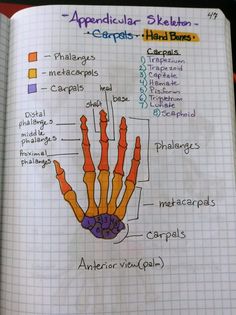 47
- Appendicular Skeleton -
- Carpals - Hand Bones -
- Phalanges
- metacarpals
- Carpals
Carpals
1) Trapezium
2) Trapezoid
3) Capitate
4) Hamate
5) Pisiform
6) Triquetrum
7) Lunate
8) Scaphoid
head
shaft
base
Distal
phalanges
middle
phalanges
Proximal
phalanges
Phalanges
metacarpals
Carpals
Anterior view (palm)